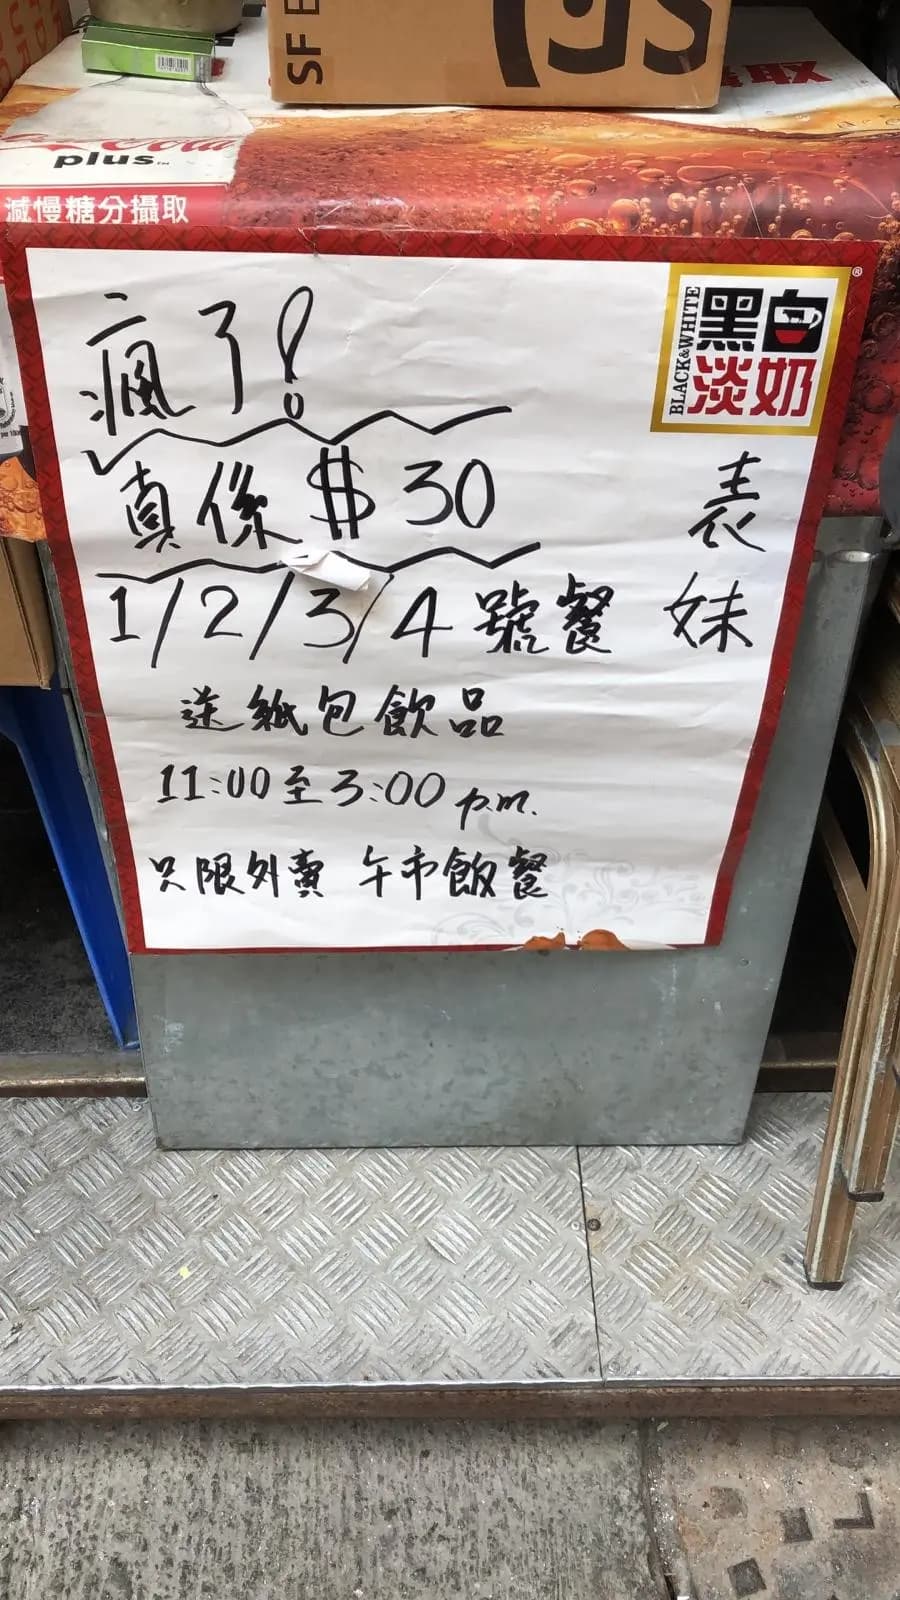 SF E
plus
減慢糖分攝取
BLACK&WHITE
黑白
淡奶
瘋了!
真係$30
1/2/3/4號餐
送紙包飲品
11:00至3:00 p.m.
只限外賣 午市飯餐
表妹